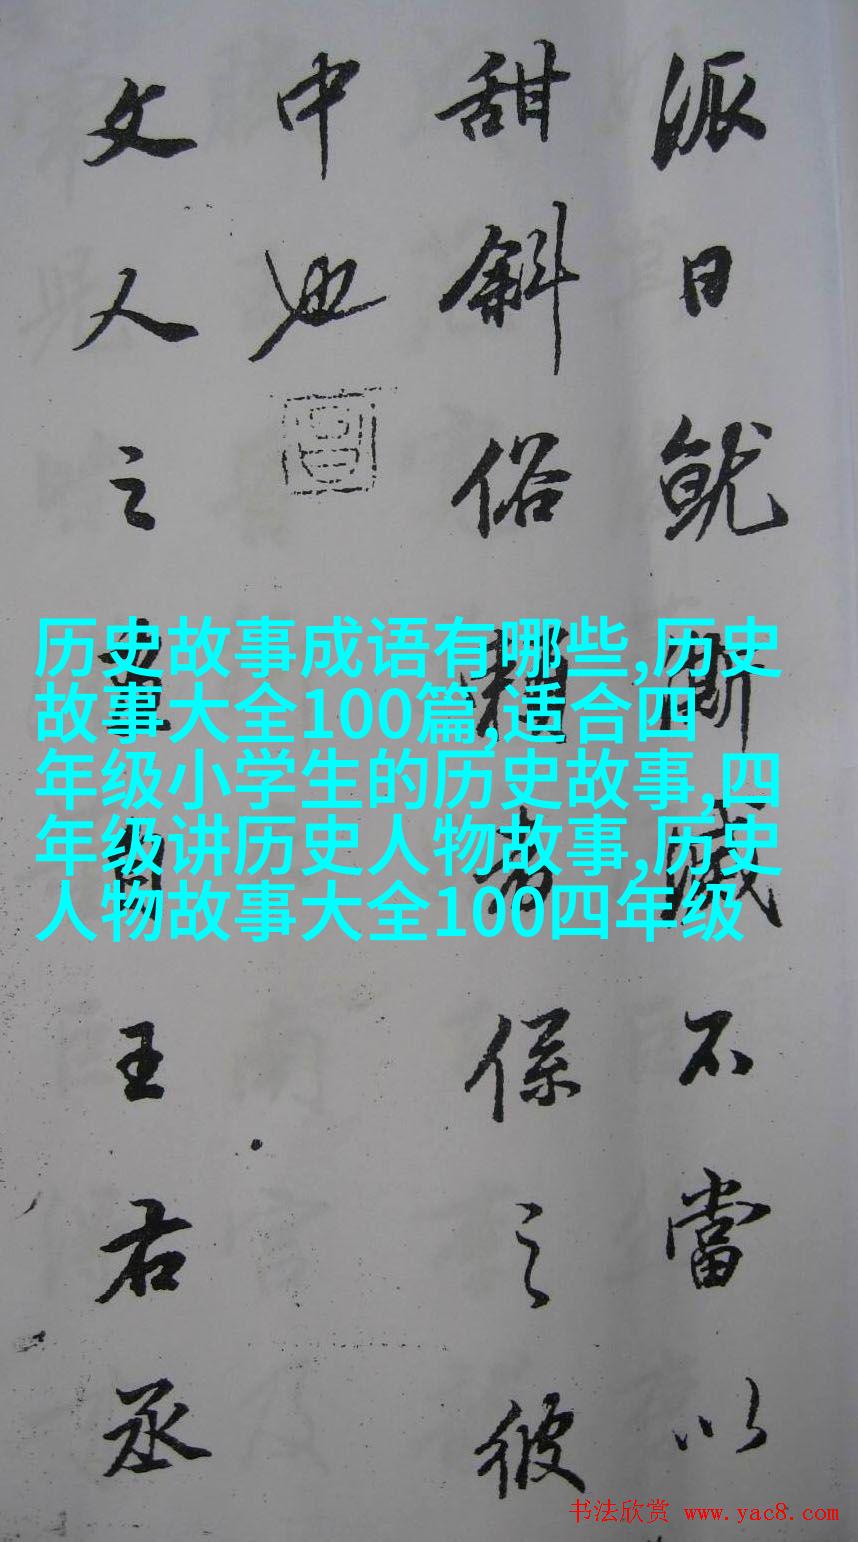 派日就滅不當以
甜斜俗賴者係之彼
中也
文人之畫自王右丞
历史故事成语有哪些,历史
故事大全100篇,适合四
年级小学生的历史故事,四
年级讲历史人物故事,历史
人物故事大全100四年级
书法欣赏 www.yac8.com